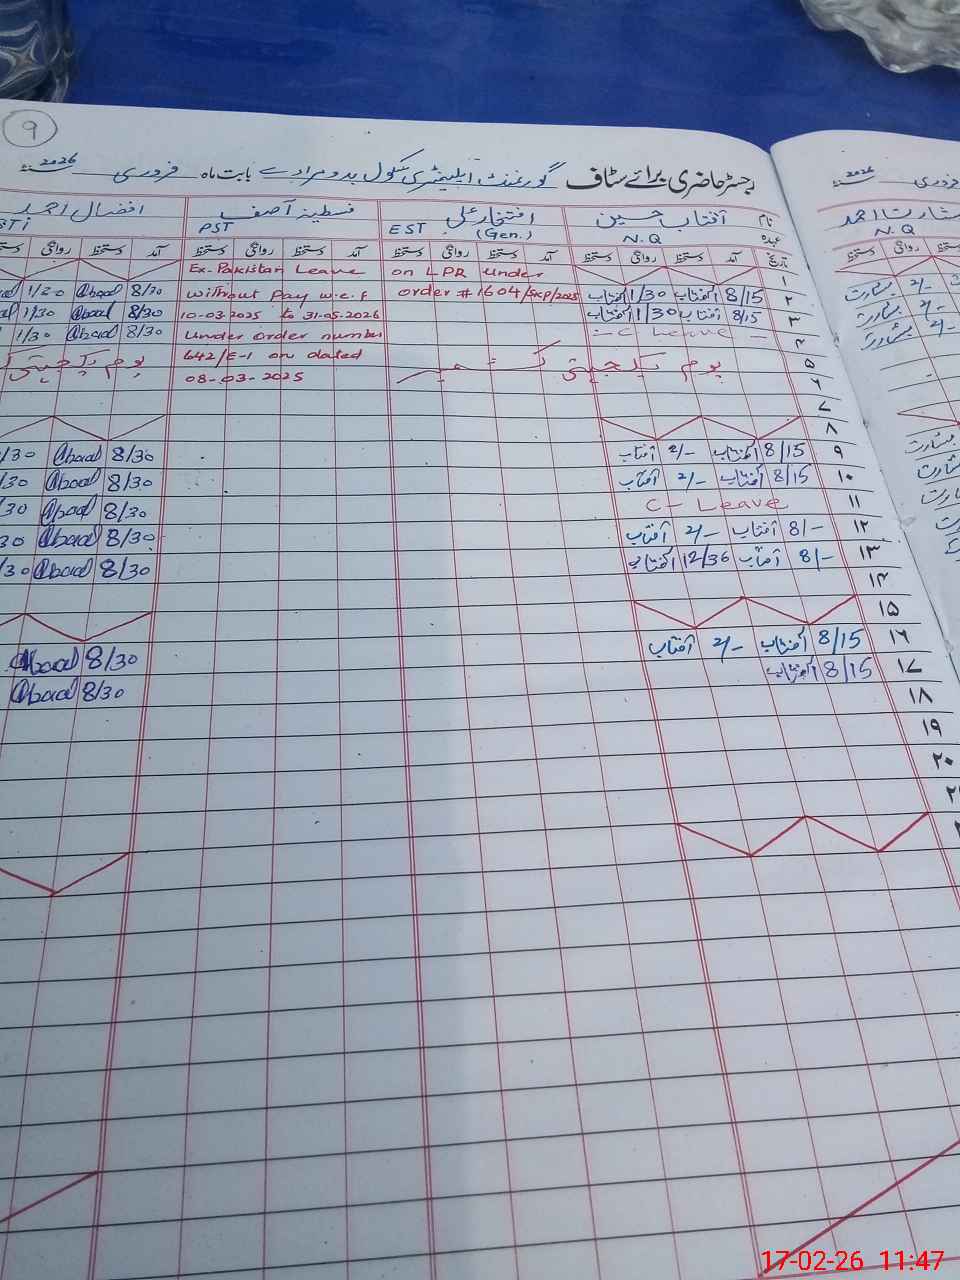 9
رجسٹر حاضری برائے سٹاف گورنمنٹ ایلیمنٹری سکول بدو مرادے بابت ماہ فروری 2026
فروری 2026
نام آفتاب حسین افتخار علی آصف افضال احمد
بشارت احمد
عہدہ N.Q (Gen.) EST PST
N.Q
تاریخ آمد دستخط روانگی دستخط آمد دستخط روانگی دستخط آمد دستخط روانگی دستخط آمد دستخط روانگی دستخط
۱
Ex-Pakistan Leave on LPR under
۲ 8/15 آفتاب 1/30 آفتاب
without pay w.e.f order # 1604/SKP/2025
8/30 Cbaad 1/20
۳ 8/15 آفتاب 1/30 آفتاب
10-03-2025 to 31-05-2026
8/30 Cbaad 1/30
۴ C-Leave
under order number
8/30 Cbaad 1/30
۵ یوم یکجہتی کشمیر
642/E-1 on dated
یوم یکجہتی
۶
08-03-2025
۷
۸
۹ 8/15 آفتاب 2/- آفتاب
8/30 Cbaad /30
۱۰ 8/15 آفتاب 2/- آفتاب
8/30 Cbaad /30
۱۱ C-Leave
8/30 Cbaad /30
۱۲ 8/- آفتاب 2/- آفتاب
8/30 Cbaad 30
۱۳ 8/- آفتاب 12/36 آفتاب
8/30 Cbaad /30
۱۴
۱۵
۱۶ 8/15 آفتاب 2/- آفتاب
8/30 Cbaad
۱۷ 8/15 آفتاب
8/30 Cbaad
۱۸
۱۹
۲۰
17-02-26 11:47